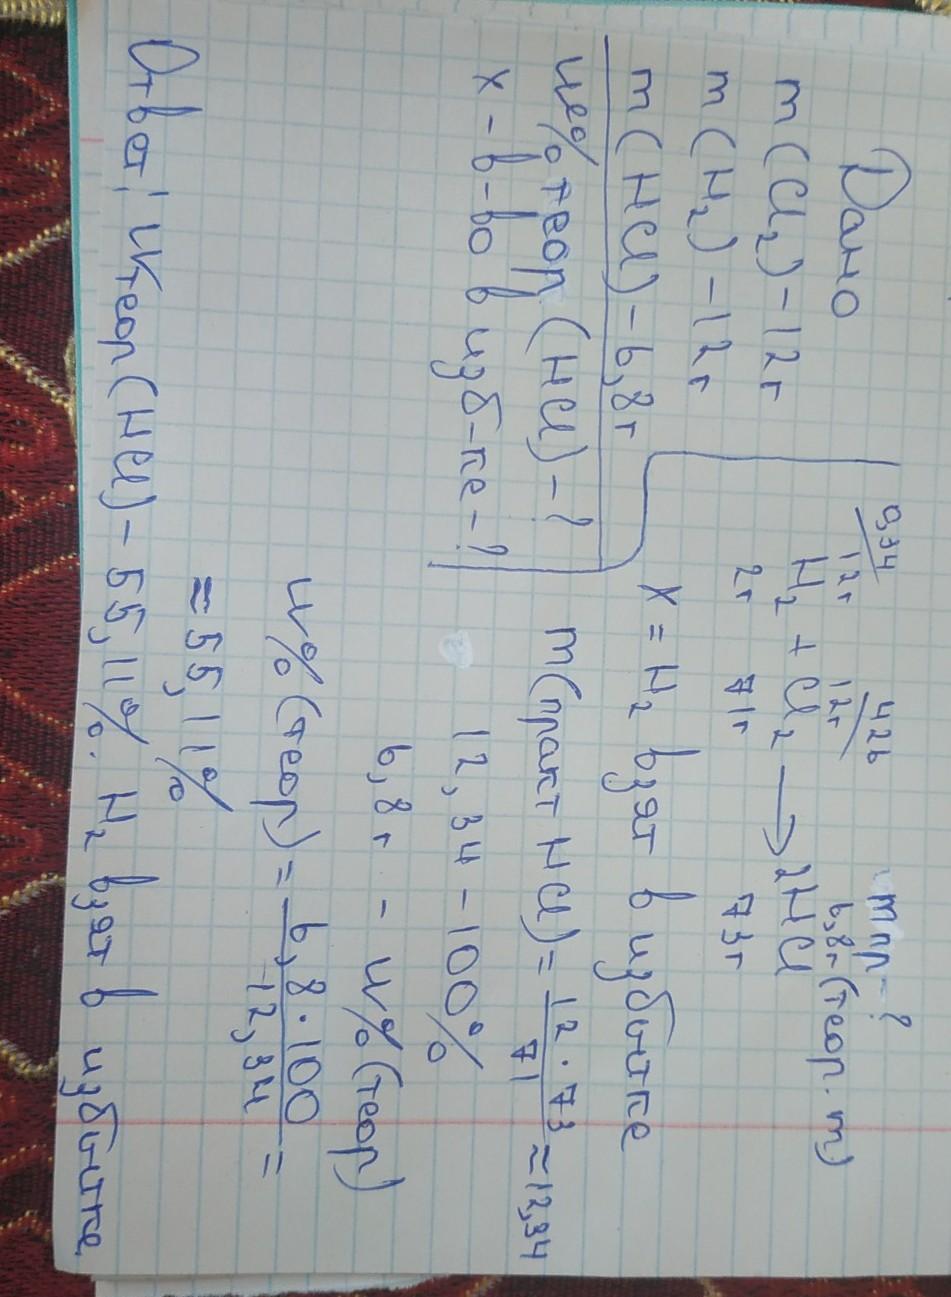 Дано
m(Cl₂) - 12г
m(H₂) - 12г
m(HCl) - 6,8г
ω% теор(HCl) - ?
x - в-во в изб-ке - ?
0,34 4,26 mпр - ?
12г 12г 6,8г(теор. m)
H₂ + Cl₂ → 2HCl
2г 71г 73г
x = H₂ взят в избытке
m(практ HCl) = 12·73/71 ≈ 12,34
12,34 - 100%
6,8г - ω%(теор)
ω%(теор) = 6,8·100/12,34 =
≈ 55,11%
Ответ: ωтеор(HCl) - 55,11%. H₂ взят в избытке